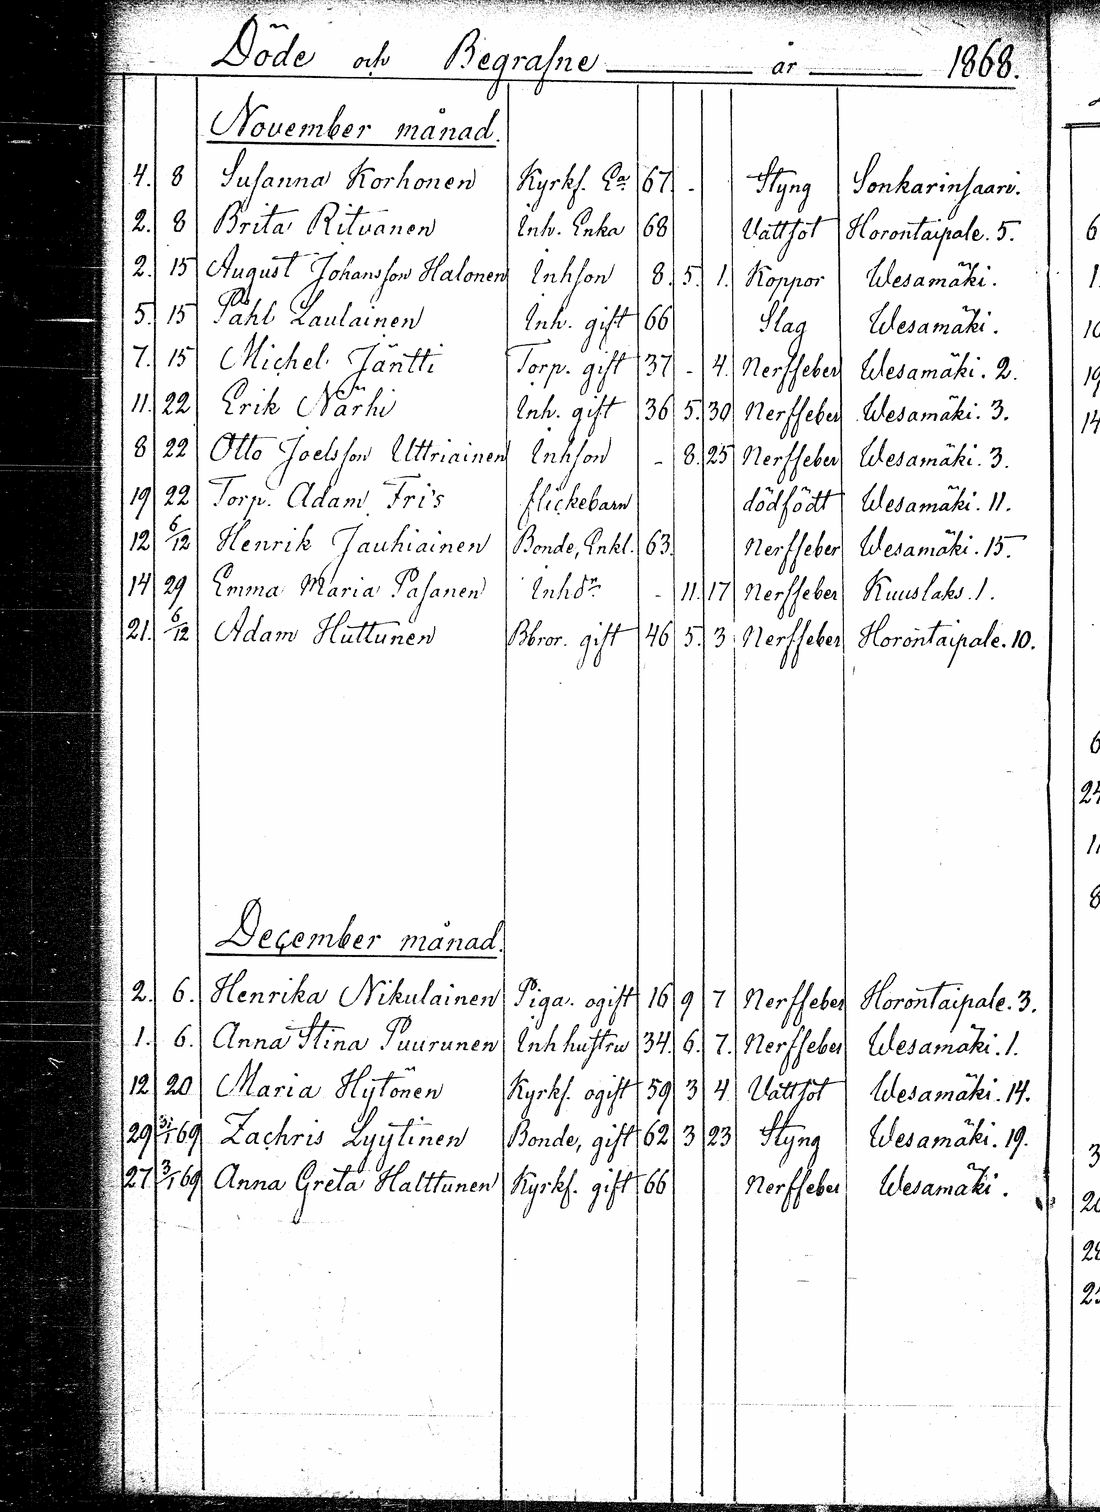 Döde och Begrafne år 1868.
November månad.
4. 8 Susanna Korhonen Kyrkf. Ea 67. - Styng Sonkarinsaari.
2. 8 Brita Ritvanen Inh. Enka 68 Vattsot Horontaipale. 5.
2. 15 August Johansson Halonen Inhson 8. 5. 1. Koppor Wesamäki.
5. 15 Påhl Laulainen Inh. gift 66 Slag Wesamäki.
7. 15 Michel Jäntti Torp. gift 37 - 4. Nerffeber Wesamäki. 2.
11. 22 Erik Närhi Inh. gift 36 5. 30 Nerffeber Wesamäki. 3.
8 22 Otto Joelsson Uttriainen Inhson - 8. 25 Nerffeber Wesamäki. 3.
19 22 Torp. Adam Fri's flickebarn dödfödt Wesamäki. 11.
12 6/12 Henrik Jauhiainen Bonde, Enkl. 63. Nerffeber Wesamäki. 15.
14 29 Emma Maria Pasanen Inhdr - 11. 17 Nerffeber Kuuslaks. 1.
21. 6/12 Adam Huttunen Bbror. gift 46 5. 3 Nerffeber Horontaipale. 10.
December månad.
2. 6. Henrika Nikulainen Piga. ogift 16 9 7 Nerffeber Horontaipale. 3.
1. 6. Anna Stina Puurunen Inhhustru 34. 6. 7. Nerffeber Wesamäki. 1.
12 20 Maria Hytönen Kyrkf. ogift 59 3 4 Vattsot Wesamäki. 14.
29 31/1 69 Zachris Lyytinen Bonde, gift 62 3 23 Styng Wesamäki. 19.
27 3/1 69 Anna Greta Halttunen Kyrkf. gift 66 Nerffeber Wesamäki.